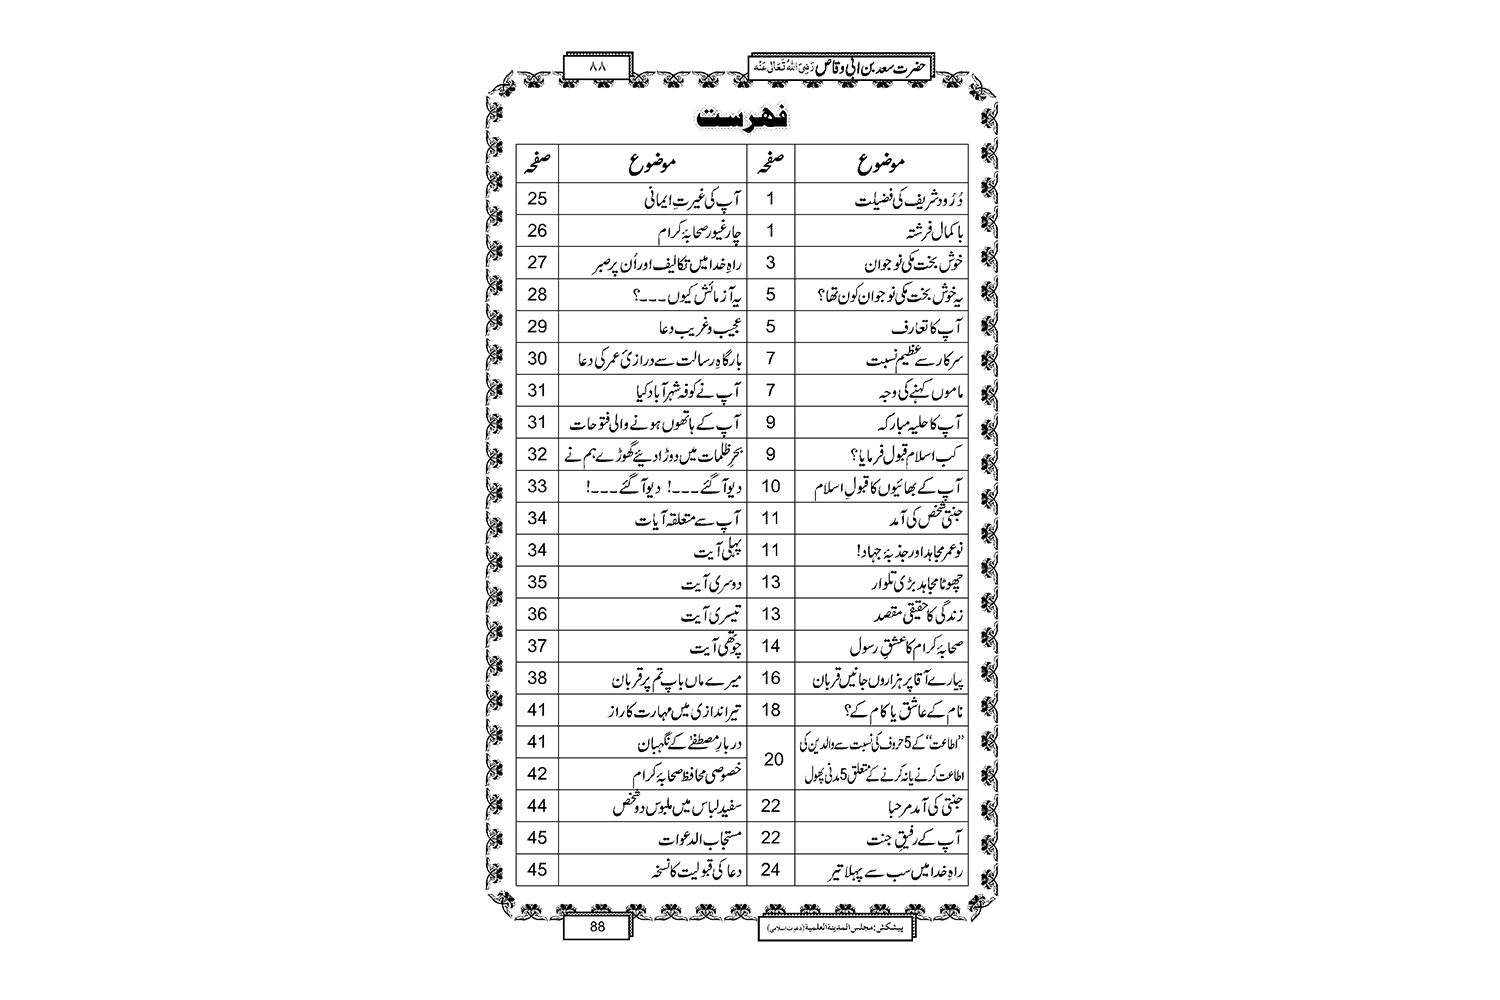 حضرت سعد بن ابی وقاص رَضِیَ اللہُ تَعَالٰی عَنْہ ۸۸
فہرست
موضوع صفحہ موضوع صفحہ
دُرُود شریف کی فضیلت 1 آپ کی غیرتِ ایمانی 25
باکمال فرشتہ 1 چار غیور صحابۂ کرام 26
خوش بخت مکی نوجوان 3 راہِ خدا میں تکالیف اور اُن پر صبر 27
یہ خوش بخت مکی نوجوان کون تھا؟ 5 یہ آزمائش کیوں ۔۔۔؟ 28
آپ کا تعارف 5 عجیب و غریب دعا 29
سرکار سے عظیم نسبت 7 بارگاہِ رسالت سے درازیٔ عمر کی دعا 30
ماموں کہنے کی وجہ 7 آپ نے کوفہ شہر آباد کیا 31
آپ کا حلیہ مبارکہ 9 آپ کے ہاتھوں ہونے والی فتوحات 31
کب اسلام قبول فرمایا؟ 9 بحرِ ظلمات میں دوڑا دیئے گھوڑے ہم نے 32
آپ کے بھائیوں کا قبولِ اسلام 10 دیو آ گئے ۔۔۔! دیو آ گئے ۔۔۔! 33
جنتی شخص کی آمد 11 آپ سے متعلقہ آیات 34
نو عمر مجاہد اور جذبۂ جہاد! 11 پہلی آیت 34
چھوٹا مجاہد بڑی تلوار 13 دوسری آیت 35
زندگی کا حقیقی مقصد 13 تیسری آیت 36
صحابۂ کرام کا عشقِ رسول 14 چوتھی آیت 37
پیارے آقا پر ہزاروں جانیں قربان 16 میرے ماں باپ تم پر قربان 38
نام کے عاشق یا کام کے؟ 18 تیر اندازی میں مہارت کا راز 41
”اطاعت“ کے 5 حروف کی نسبت سے والدین کی 20 دربارِ مصطفٰے کے نگہبان 41
اطاعت کرنے یا نہ کرنے کے متعلق 5 مدنی پھول خصوصی محافظ صحابۂ کرام 42
جنتی کی آمد مرحبا 22 سفید لباس میں ملبوس دو شخص 44
آپ کے رفیقِ جنت 22 مستجاب الدعوات 45
راہِ خدا میں سب سے پہلا تیر 24 دعا کی قبولیت کا نسخہ 45
پیشکش: مجلس المدینۃ العلمیۃ (دعوتِ اسلامی) 88